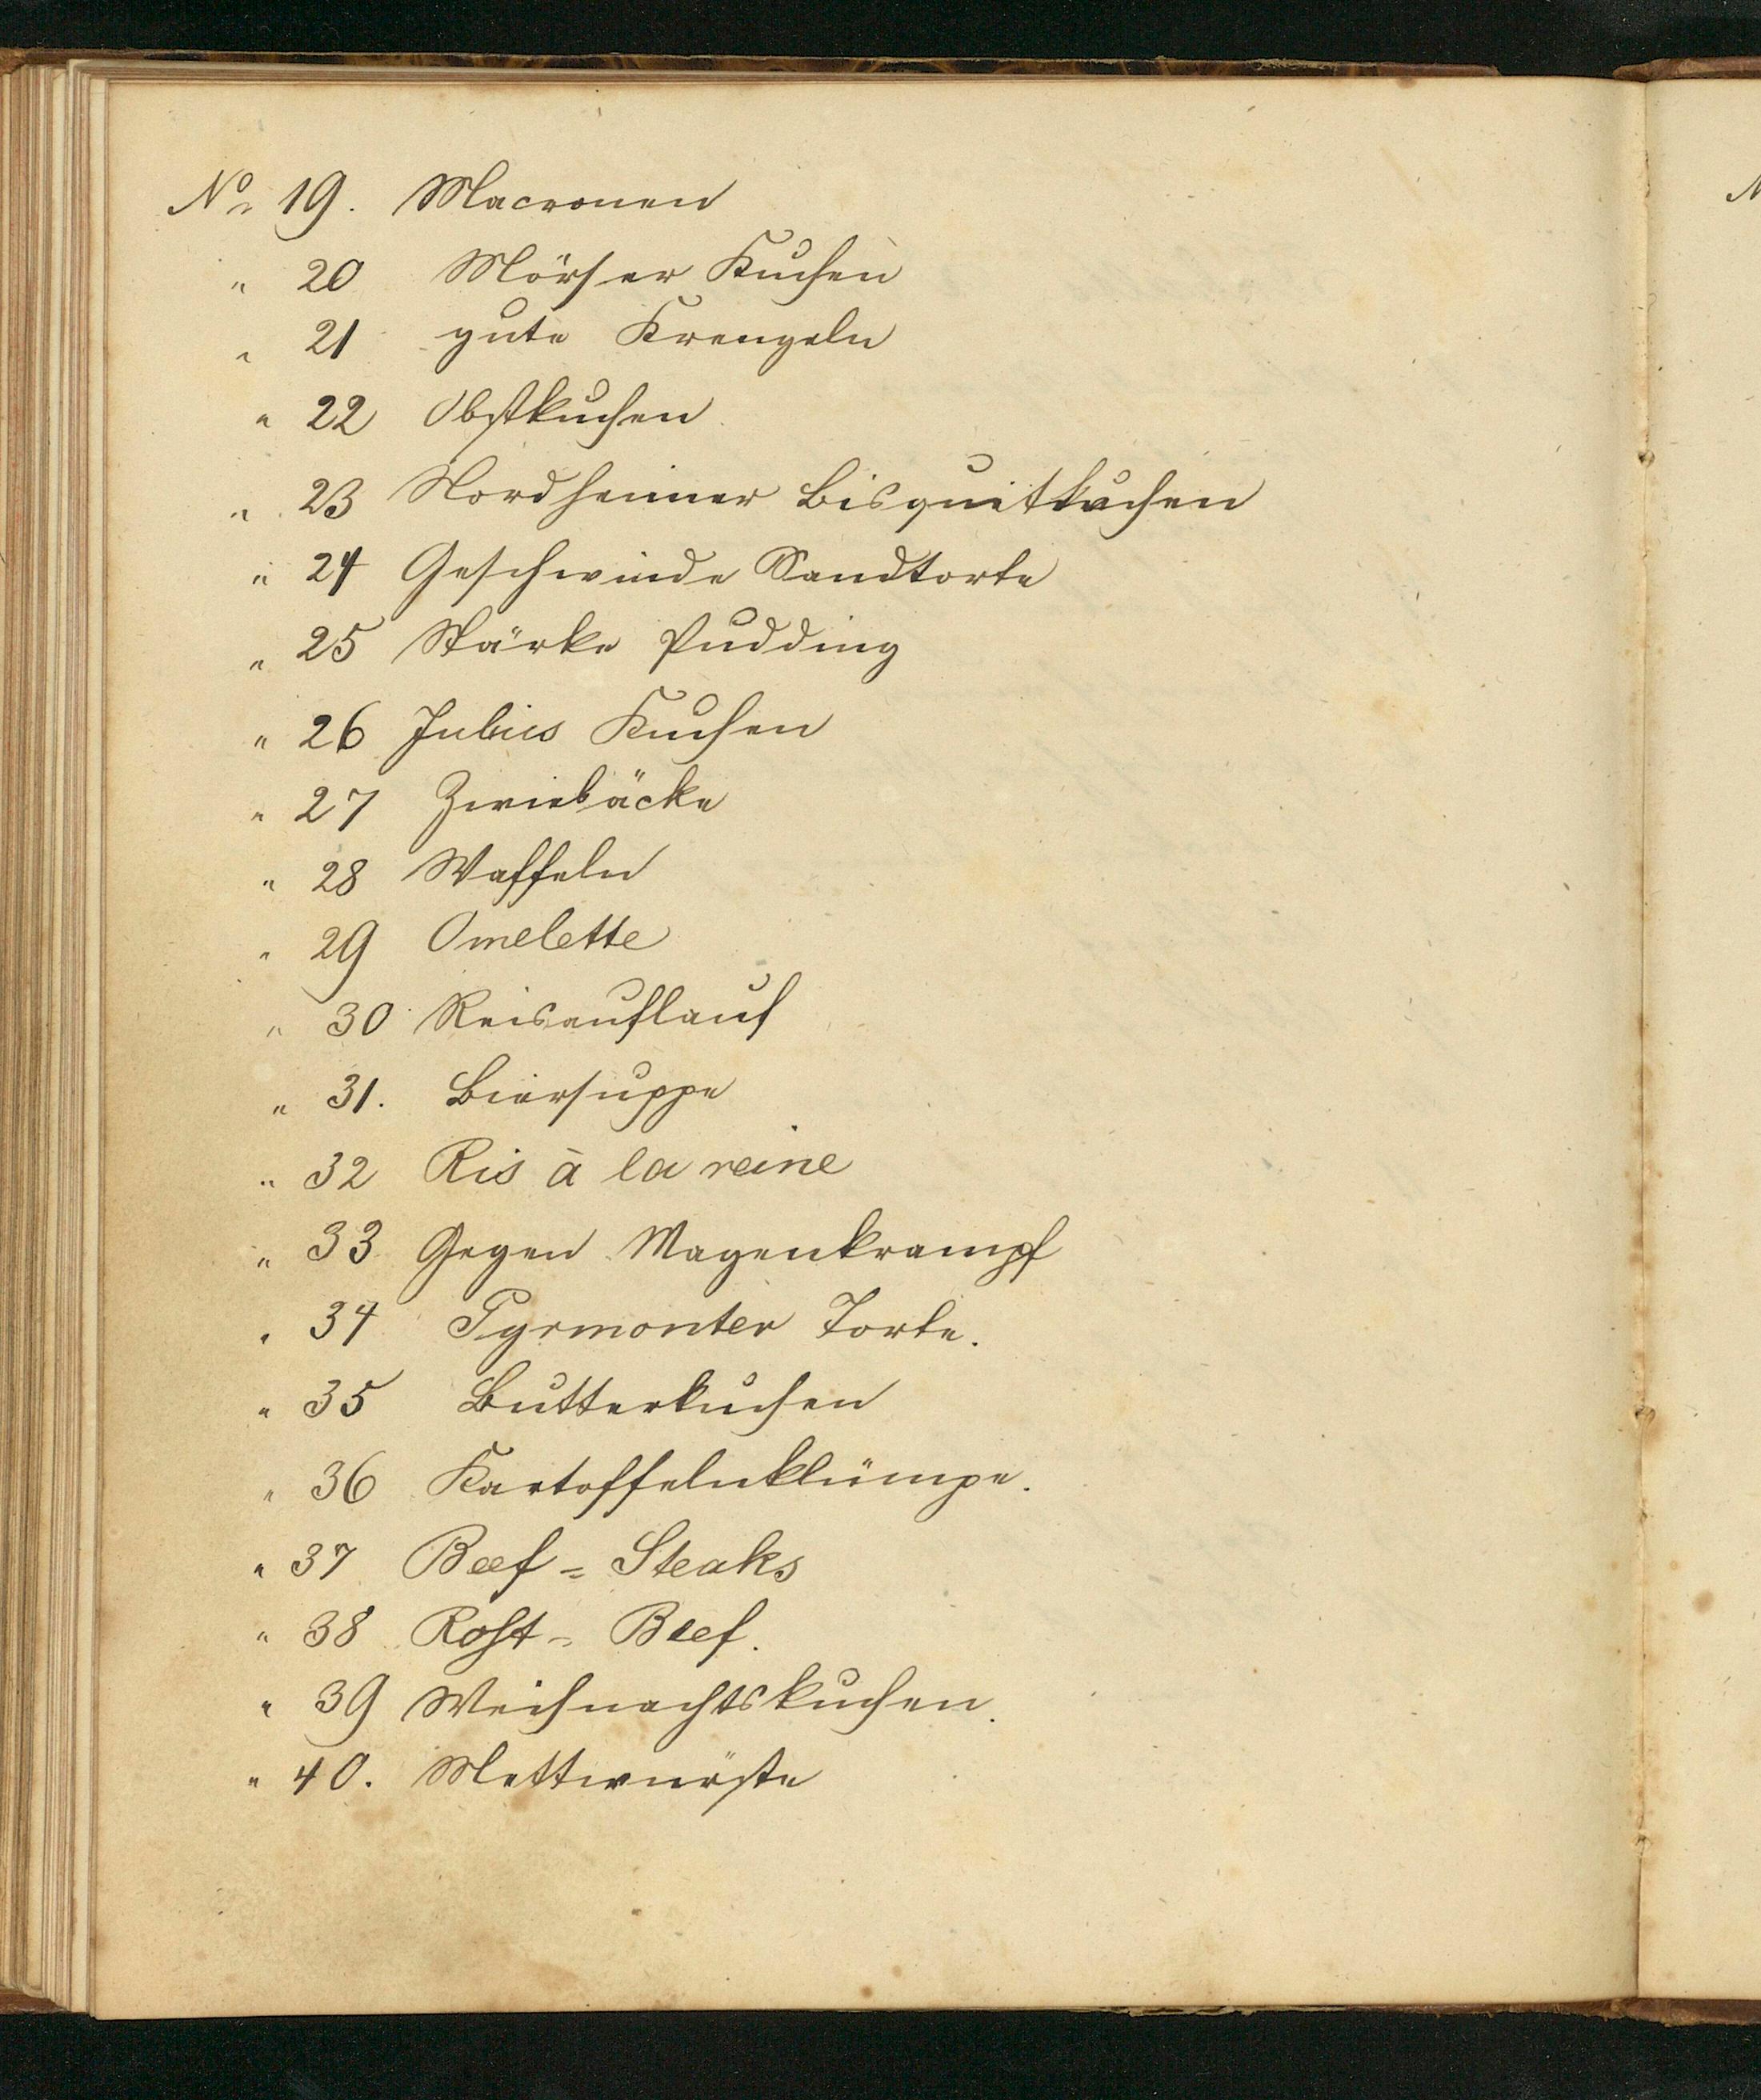 No 19. Macronen
" 20 Mörser Kuchen
" 21 gute Krengeln
" 22 Obstkuchen
" 23 Nordheimer Bisquitkuchen
" 24 Geschwinde Sandtorte
" 25 Stärke Pudding
" 26 Julius Kuchen
" 27 Zwiebäcke
" 28 Waffeln
" 29 Omelette
" 30 Reisauflauf
" 31. Biersuppe
" 32 Ris à la reine
" 33 Gegen Magenkrampf
" 34 Pyrmonter Torte.
" 35 Butterkuchen
" 36 Kartoffelnklümpe.
" 37 Beef = Steaks
" 38 Rost = Beef.
" 39 Weihnachtskuchen.
" 40. Mettwürste